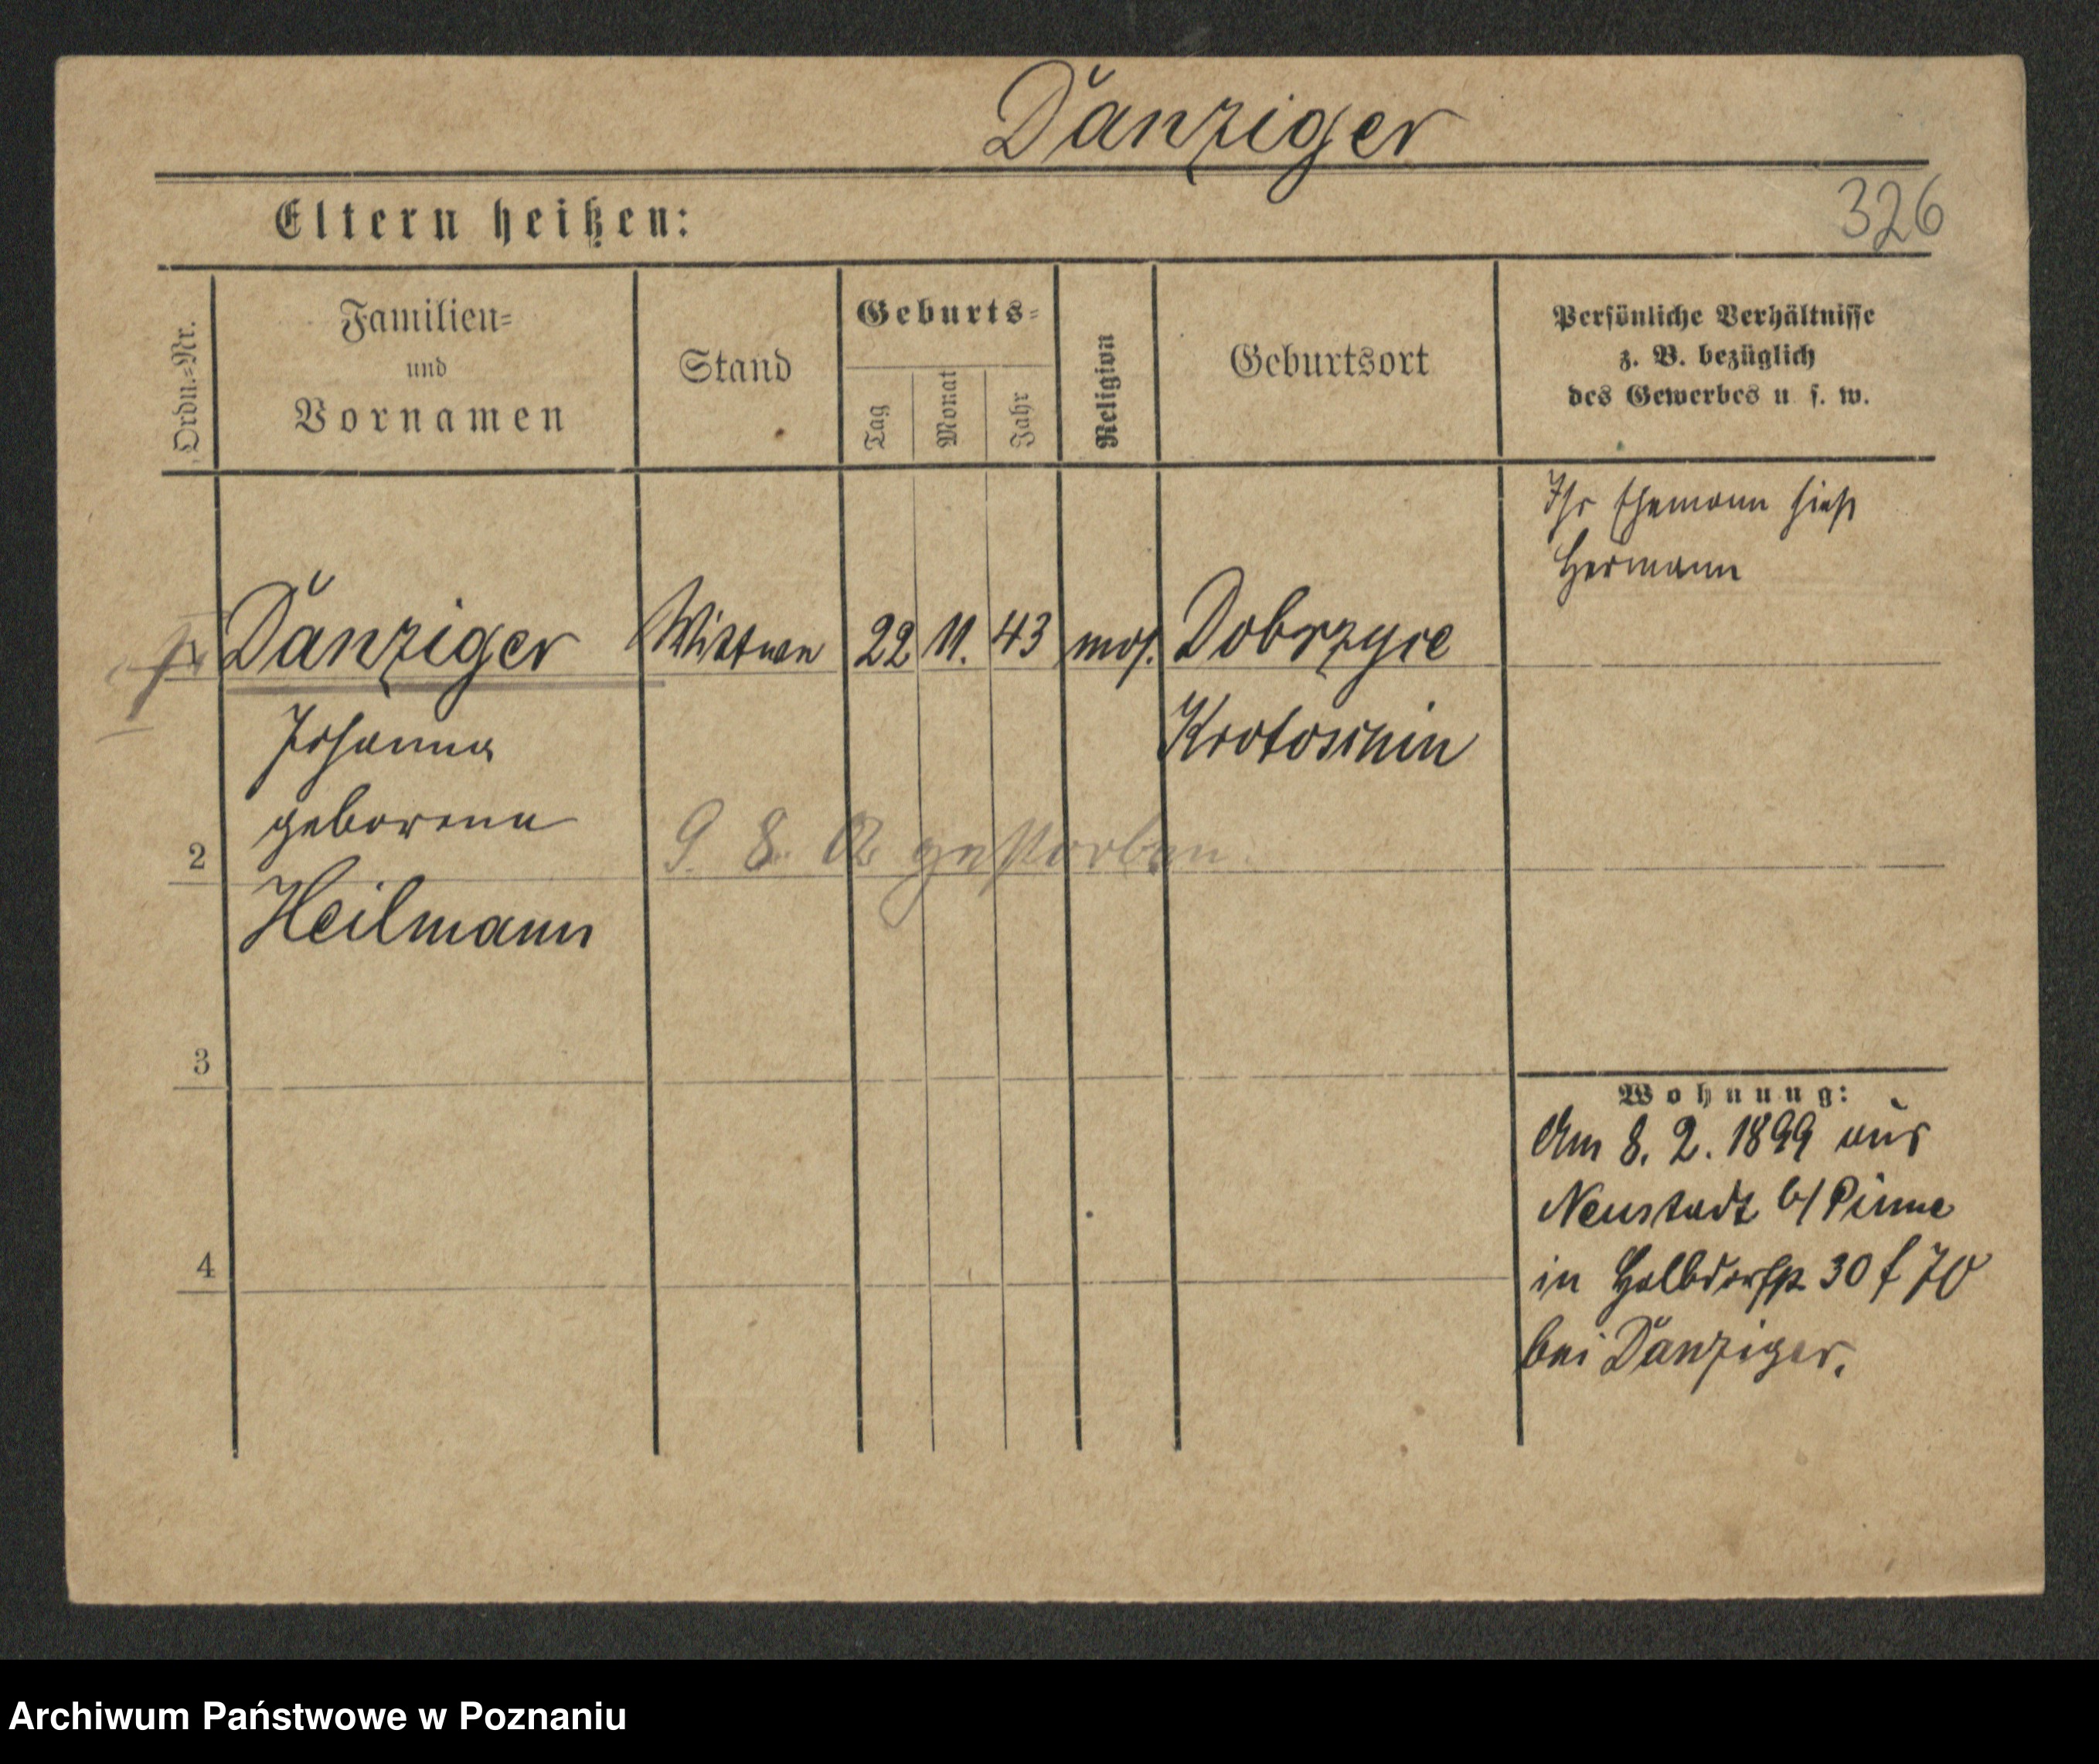 Dänziger
326
Eltern heißen:
Ordn.-Nr.
Familien-
und
Vornamen
Stand
Geburts-
Tag
Monat
Jahr
Religion
Geburtsort
Persönliche Verhältnisse
z. B. bezüglich
des Gewerbes u. s. w.
Ihr Ehemann hieß
Hermann
Dänziger Wittwe 22 11. 43 mos. Dobrzyce
Johanna Krotoschin
geborene
2 9. 8. gestorben
Heilmann
3
Wohnung:
Am 8. 2. 1899 aus
Neustadt b/Pinne
4 in Halbdorfstr 30
bei Dänziger.
Archiwum Państwowe w Poznaniu